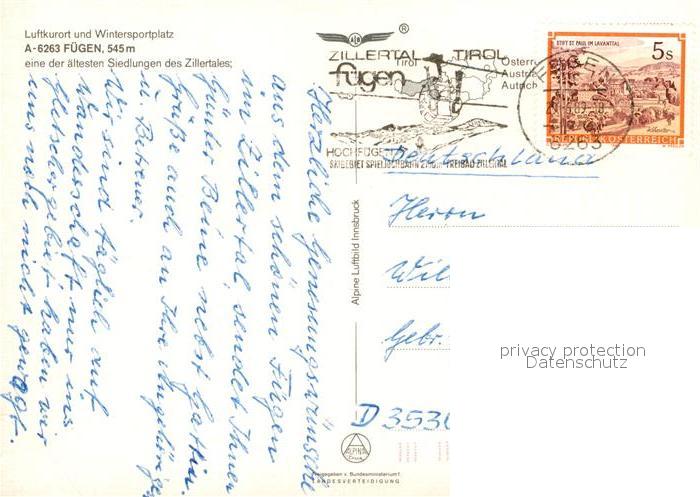 Luftkurort und Wintersportplatz
A-6263 FÜGEN, 545 m
eine der ältesten Siedlungen des Zillertales;
Herzliche Genesungswünsche
aus dem schönen Fügen
im Zillertal, sendet Ihnen
Gunter Beine nebst Gattin.
Grüße auch an Ihre Angehörigen
u. Bauer.
Wir sind täglich auf
Wanderschaft nur ins
Gletschergebiet haben wir
uns noch nicht gewagt.
Alpine Luftbild Innsbruck
ALPINE
Freigegeben v. Bundesministerium f.
LANDESVERTEIDIGUNG
ZILLERTAL TIROL
fügen Tirol
HOCHFÜGEN
SKIGEBIET SPIELJOCHBAHN FREIBAD ZILLERTAL
STIFT ST. PAUL IM LAVANTTAL
5s
REPUBLIK ÖSTERREICH
6263
Deutschland
Herrn
Wil
Gebr.
D 353
privacy protection
Datenschutz